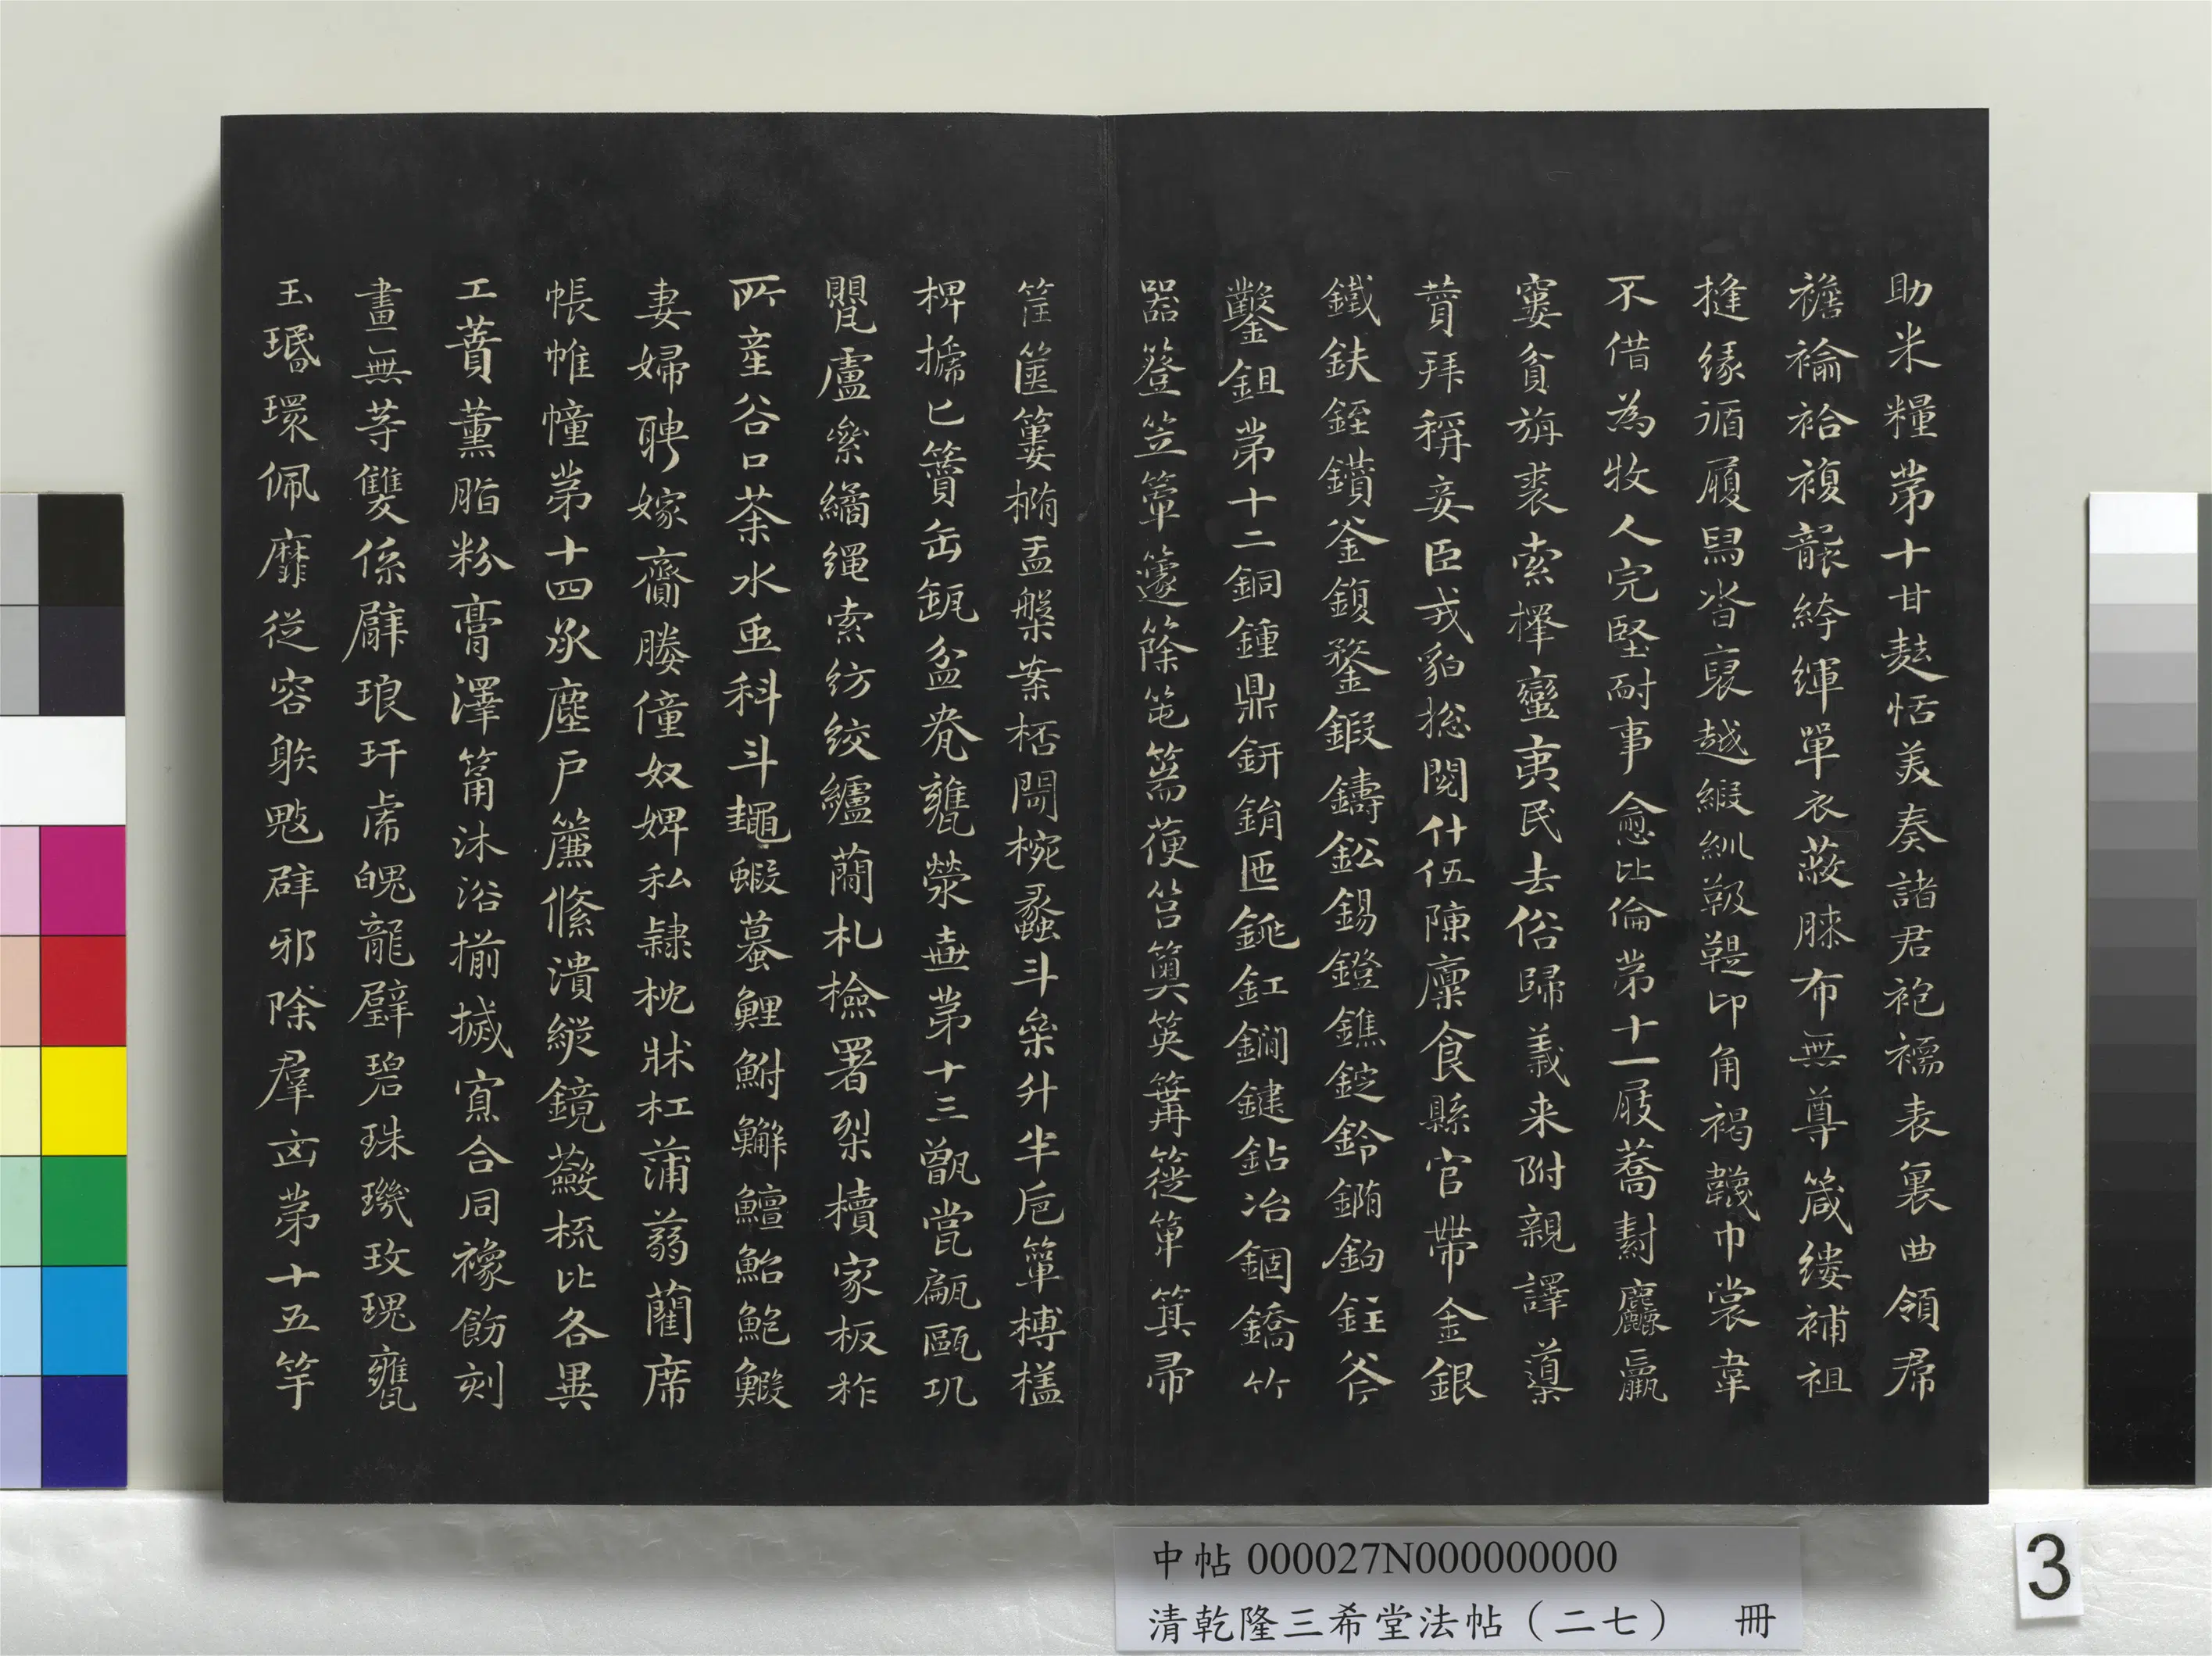 助米糧第十甘麮恬美奏諸君袍襦表裏曲領帬
襜褕袷複襲絝緷單衣蔽膝布無尊箴縷補袒
摓緣循履舄沓裒越緞紃靸鞮卬角褐韤巾裳韋
不借為牧人完堅耐事愈比倫第十一屐蕎䵻麤羸
窶貧旃裘索擇蠻夷民去俗歸義来附親譯導
贊拜稱妾臣戎貃㧾閱什伍陳廩食縣官帶金銀
鐵鈇銍鑽釜鍑鍪鍜鑄鈆錫鐙鐎錠鈴鐈鉤銍斧
鑿鉏第十二銅鍾鼎鈃鋗匜銚釭鐗鍵鉆冶錮鐍竹
器簦笠簟籧篨笔篅䓻筥箕䈠篝簁箄箕帚
筐篋簍橢盂槃案桮閜椀蠡斗枲升半卮箪榑榼
椑㯫匕簀缶缻盆㼜甕罃壺第十三甑瓽甂甌瓨
甖盧絫繘繩索紡絞纑䕞札檢署槧櫝家板柞
所產谷口荼水䖝科斗䵷蝦蟇鯉鮒鱓鱣鮐鮑鰕
妻婦聘嫁齎媵僮奴婢私隷枕牀杠蒲蒻藺席
帳帷幢第十四承塵戶㡘絛潰縱鏡籢梳比各異
工蕡薰脂粉膏澤筩沐浴揃搣寡合同襐飭刻
畫無等雙係臂琅玕虎魄龍璧碧珠璣玫瑰甕
玉璏環佩靡從容射鬾辟邪除羣凶第十五竽
中帖 000027N000000000
清乾隆三希堂法帖（二七）　冊
3